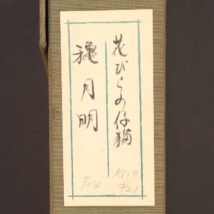 花びらの仔猫
穐月明
F4